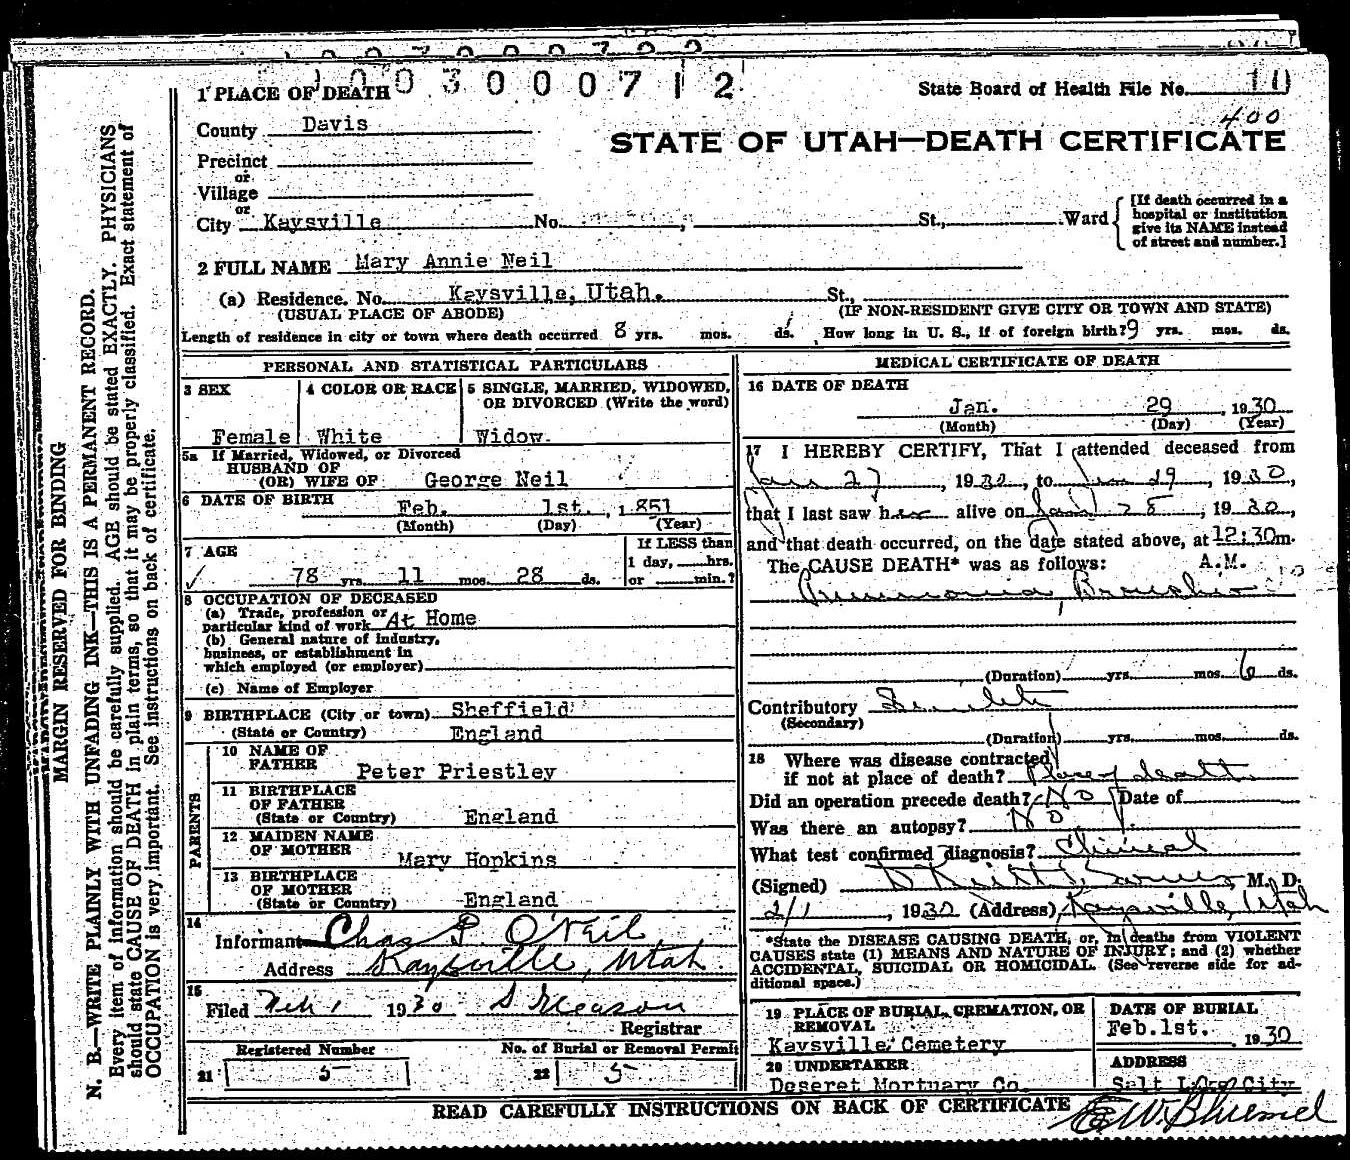 1003000712
State Board of Health File No. 10
400
1 PLACE OF DEATH
STATE OF UTAH—DEATH CERTIFICATE
County Davis
Precinct
or
Village
or
City Kaysville No. St., Ward
[If death occurred in a
hospital or institution
give its NAME instead
of street and number.]
2 FULL NAME Mary Annie Neil
(a) Residence. No. Kaysville, Utah. St.,
(USUAL PLACE OF ABODE) (IF NON-RESIDENT GIVE CITY OR TOWN AND STATE)
Length of residence in city or town where death occurred 8 yrs. mos. ds. How long in U. S., if of foreign birth? 9 yrs. mos. ds.
PERSONAL AND STATISTICAL PARTICULARS
3 SEX
Female
4 COLOR OR RACE
White
5 SINGLE, MARRIED, WIDOWED,
OR DIVORCED (Write the word)
Widow.
5a If Married, Widowed, or Divorced
HUSBAND OF
(OR) WIFE OF George Neil
6 DATE OF BIRTH
Feb. 1st. , 1851
(Month) (Day) (Year)
7 AGE
78 yrs. 11 mos. 28 ds.
If LESS than
1 day, hrs.
or min.?
8 OCCUPATION OF DECEASED
(a) Trade, profession or
particular kind of work At Home
(b) General nature of industry,
business, or establishment in
which employed (or employer)
(c) Name of Employer
9 BIRTHPLACE (City or town) Sheffield
(State or Country) England
PARENTS
10 NAME OF
FATHER
Peter Priestley
11 BIRTHPLACE
OF FATHER
(State or Country) England
12 MAIDEN NAME
OF MOTHER
Mary Hopkins
13 BIRTHPLACE
OF MOTHER
(State or Country) England
14
Informant Chas P. O'Neil
Address Kaysville, Utah.
15
Filed Feb 1 1930 S Gleason
Registrar
Registered Number
21 5
No. of Burial or Removal Permit
22 5
MEDICAL CERTIFICATE OF DEATH
16 DATE OF DEATH
Jan. 29 , 1930
(Month) (Day) (Year)
17 I HEREBY CERTIFY, That I attended deceased from
Jan 27, 1930, to Jan 29, 1930,
that I last saw her alive on Jan 28, 1930,
and that death occurred, on the date stated above, at 12:30 m.
The CAUSE DEATH* was as follows: A.M.
Pneumonia, Broncho
(Duration) yrs. mos. 6 ds.
Contributory Senility
(Secondary)
(Duration) yrs. mos. ds.
18 Where was disease contracted
if not at place of death? Place of death.
Did an operation precede death? No Date of
Was there an autopsy? No
What test confirmed diagnosis? Clinical
(Signed) D Keith Barnes M. D.
2/1, 1930 (Address) Kaysville, Utah
*State the DISEASE CAUSING DEATH, or, in deaths from VIOLENT
CAUSES state (1) MEANS AND NATURE OF INJURY; and (2) whether
ACCIDENTAL, SUICIDAL OR HOMICIDAL. (See reverse side for ad-
ditional space.)
19 PLACE OF BURIAL, CREMATION, OR
REMOVAL
Kaysville Cemetery
DATE OF BURIAL
Feb.1st. , 1930
20 UNDERTAKER
Deseret Mortuary Co.
ADDRESS
Salt Lake City
READ CAREFULLY INSTRUCTIONS ON BACK OF CERTIFICATE
MARGIN RESERVED FOR BINDING
N. B.—WRITE PLAINLY WITH UNFADING INK—THIS IS A PERMANENT RECORD.
Every item of information should be carefully supplied. AGE should be stated EXACTLY. PHYSICIANS
should state CAUSE OF DEATH in plain terms, so that it may be properly classified. Exact statement of
OCCUPATION is very important. See instructions on back of certificate.